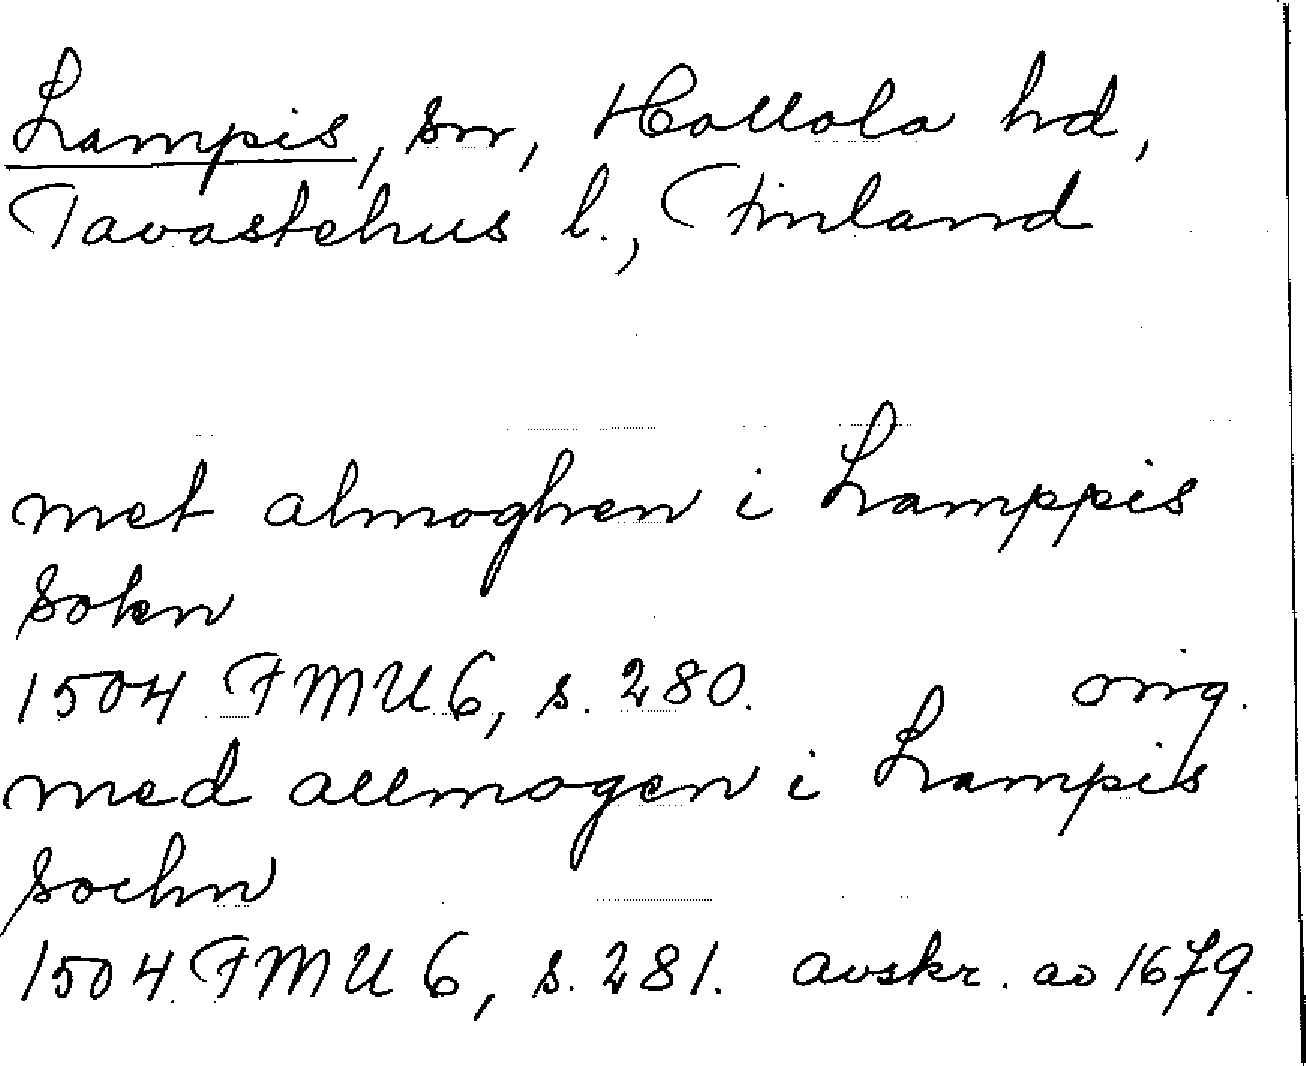 Lampis, sn, Hollola hd,
Tavastehus l., Finland
met almoghen i Lamppis
sokn
1504 FMU 6, s. 280. orig.
med allmogen i Lampis
sochn
1504. FMU 6, s. 281. avskr. av 1679.